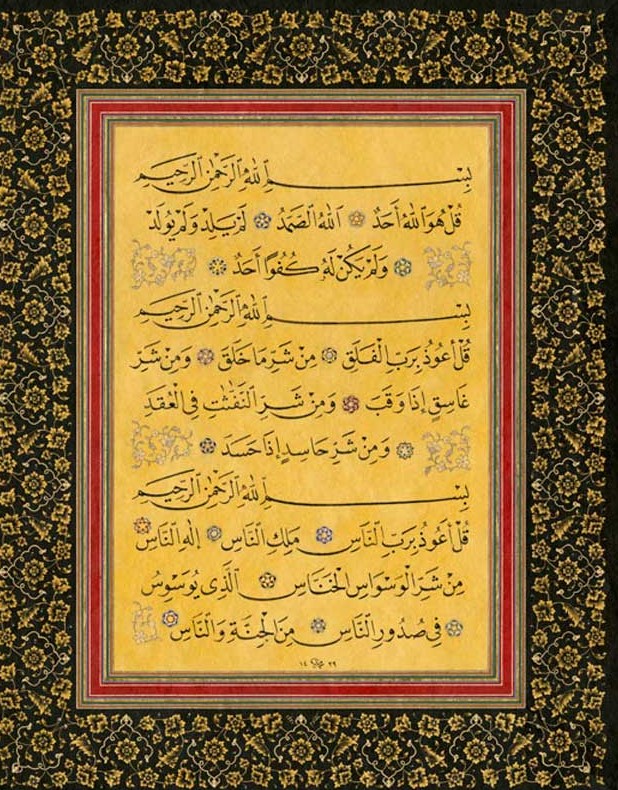 بِسْمِ ٱللهِ ٱلرَّحْمٰنِ ٱلرَّحِيمِ
قُلْ هُوَ ٱللهُ أَحَدٌ ٱللهُ ٱلصَّمَدُ لَمْ يَلِدْ وَلَمْ يُولَدْ
وَلَمْ يَكُنْ لَهُ كُفُوًا أَحَدٌ
بِسْمِ ٱللهِ ٱلرَّحْمٰنِ ٱلرَّحِيمِ
قُلْ أَعُوذُ بِرَبِّ ٱلْفَلَقِ مِنْ شَرِّ مَا خَلَقَ وَمِنْ شَرِّ
غَاسِقٍ إِذَا وَقَبَ وَمِنْ شَرِّ ٱلنَّفّٰثٰتِ فِي ٱلْعُقَدِ
وَمِنْ شَرِّ حَاسِدٍ إِذَا حَسَدَ
بِسْمِ ٱللهِ ٱلرَّحْمٰنِ ٱلرَّحِيمِ
قُلْ أَعُوذُ بِرَبِّ ٱلنَّاسِ مَلِكِ ٱلنَّاسِ إِلٰهِ ٱلنَّاسِ
مِنْ شَرِّ ٱلْوَسْوَاسِ ٱلْخَنَّاسِ ٱلَّذِى يُوَسْوِسُ
فِى صُدُورِ ٱلنَّاسِ مِنَ ٱلْجِنَّةِ وَٱلنَّاسِ